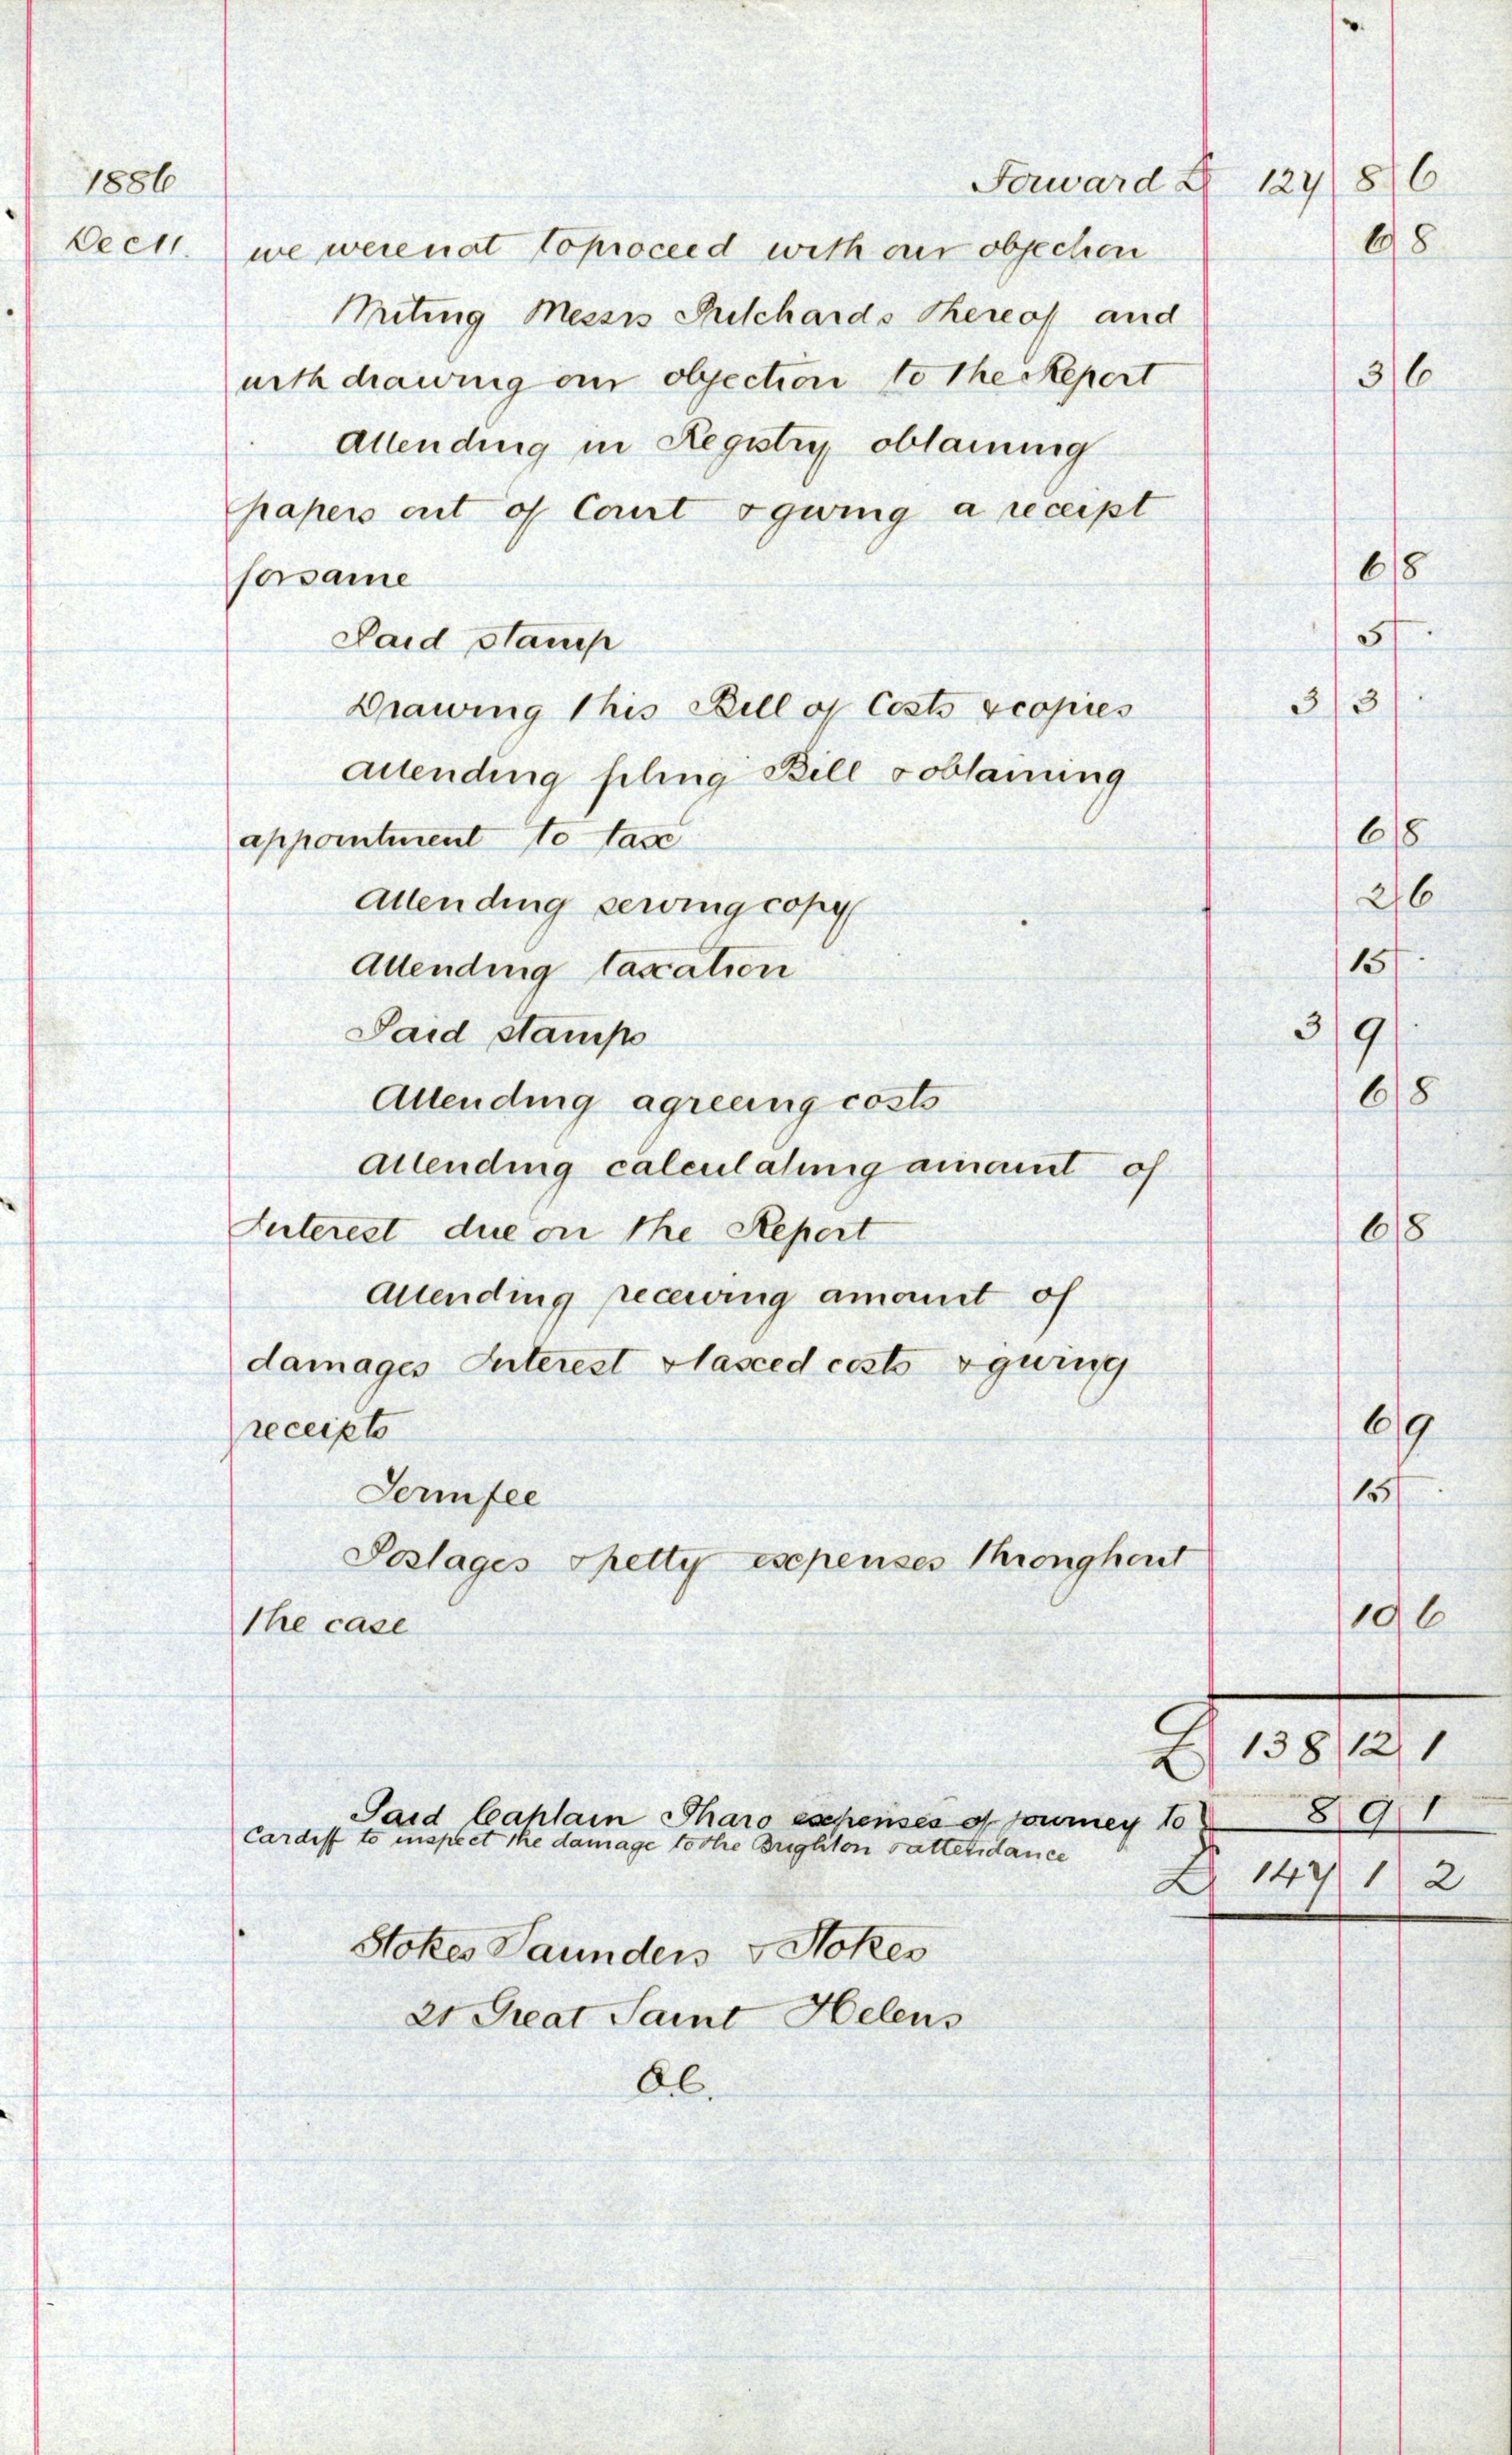 1886 Forward £ 127 8 6
Dec 11. we were not to proceed with our objection 6 8
Writing Messrs Pritchards thereof and
withdrawing our objection to the Report 3 6
Attending in Registry obtaining
papers out of Court & giving a receipt
for same 6 8
Paid stamp 5 .
Drawing this Bill of Costs & copies 3 3 .
Attending filing Bill & obtaining
appointment to tax 6 8
Attending serving copy 2 6
Attending taxation 15 .
Paid stamps 3 9 .
Attending agreeing costs 6 8
Attending calculating amount of
Interest due on the Report 6 8
Attending receiving amount of
damages Interest & taxed costs & giving
receipts 6 9
Term fee 15 .
Postages & petty expenses throughout
the case 10 6
£ 138 12 1
Paid Captain Tharo expenses of journey to 8 9 1
Cardiff to inspect the damage to the Brighton & attendance
£ 147 1 2
Stokes Saunders & Stokes
21 Great Saint Helens